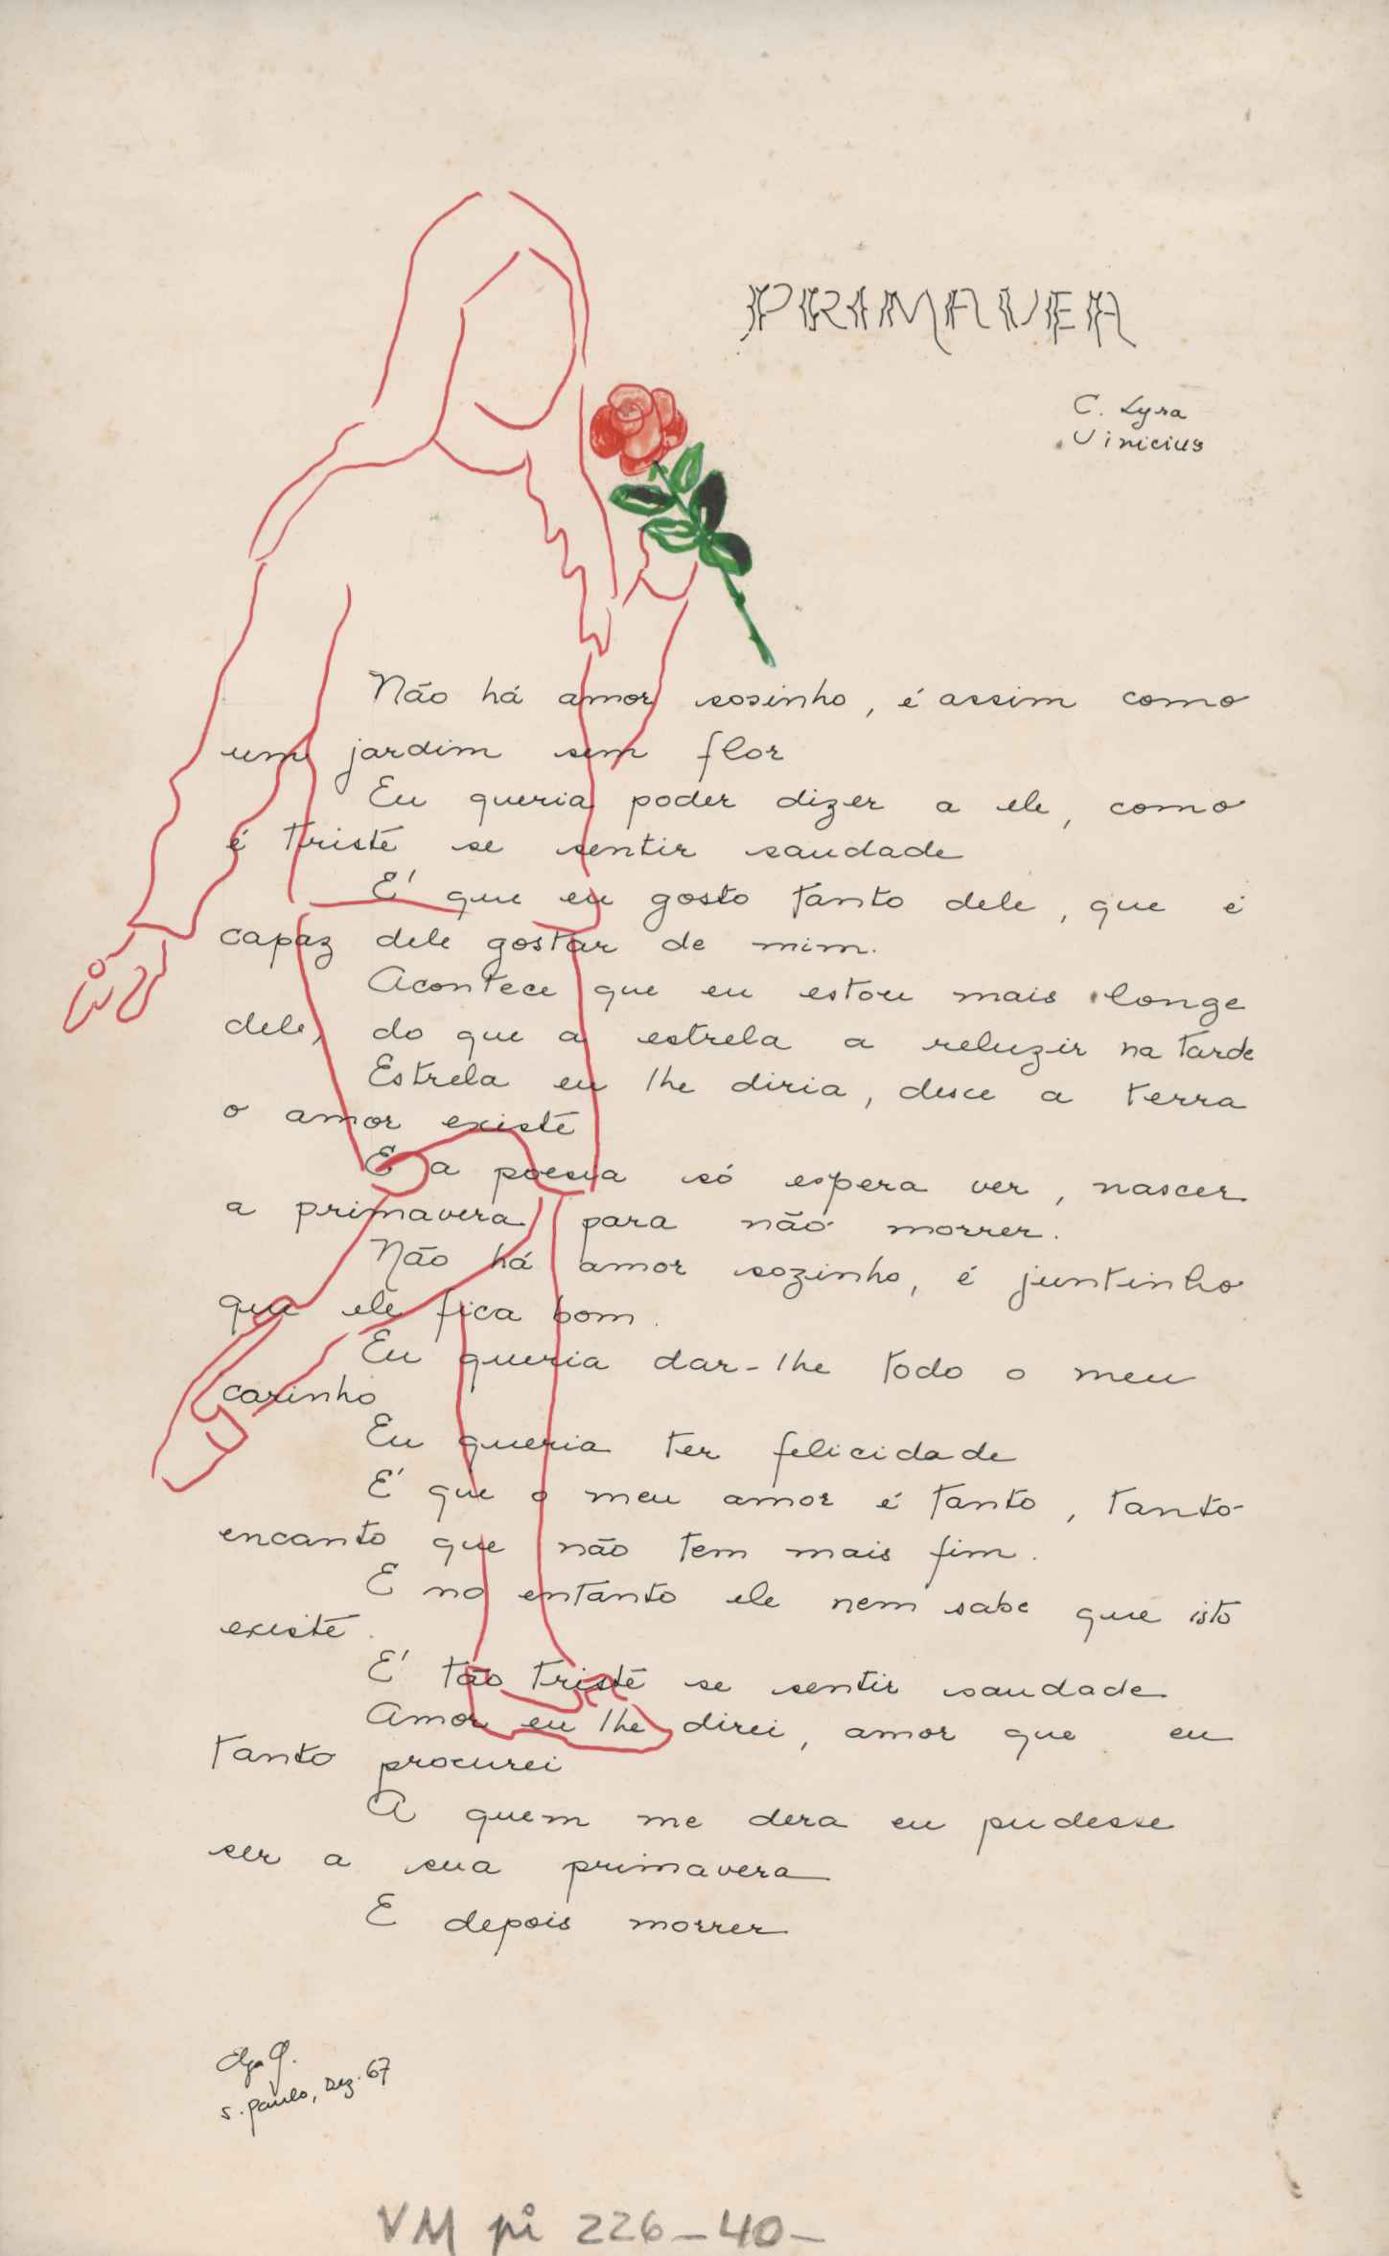 PRIMAVEA
C. Lyra
Vinicius
Não há amor sosinho, é assim como
um jardim sem flor
Eu queria poder dizer a ele, como
é triste se sentir saudade
E' que eu gosto tanto dele, que é
capaz dele gostar de mim.
Acontece que eu estou mais longe
dele, do que a estrela a reluzir na tarde
Estrela eu lhe diria, desce a terra
o amor existe
E a poesia só espera ver, nascer
a primavera para não morrer.
Não há amor sozinho, é juntinho
que ele fica bom.
Eu queria dar-lhe todo o meu
carinho
Eu queria ter felicidade
E' que o meu amor é tanto, tanto
encanto que não tem mais fim.
E no entanto ele nem sabe que isto
existe.
E' tão triste se sentir saudade
Amor eu lhe direi, amor que eu
tanto procurei
A quem me dera eu pudesse
ser a sua primavera
E depois morrer
S. Paulo, Dez. 67
VM pi 226-40-